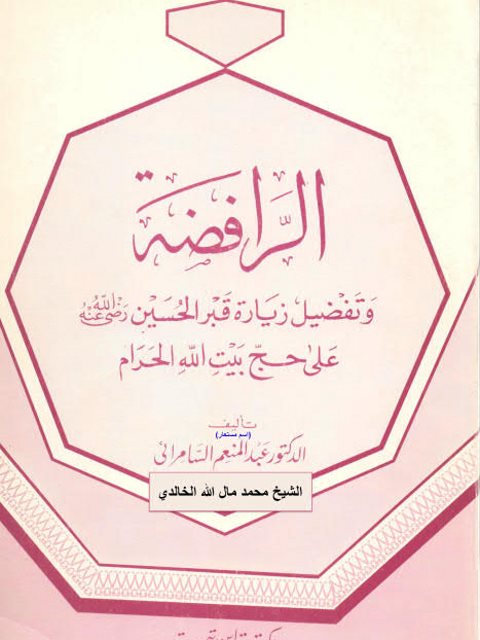 الرَّافِضَة
وَتَفْضِيل زِيَارة قَبْر الحُسَيْن رَضِيَ اللهُ عَنْهُ
عَلىٰ حَجّ بَيْتِ اللهِ الحَرَام
تأليف
(اسم مستعار)
الدكتور عَبْد المنعِم السَّامرائي
الشيخ محمد مال الله الخالدي